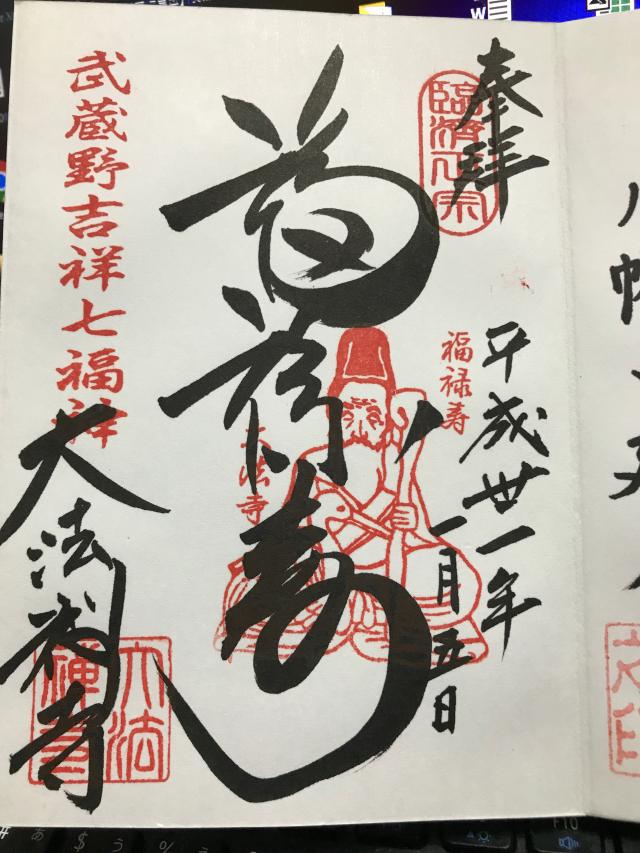 奉拝
臨済正宗
平成丗一年
一月五日
福禄寿
福禄寿
大法寺
武蔵野吉祥七福神
大法禅寺
大法
禅寺